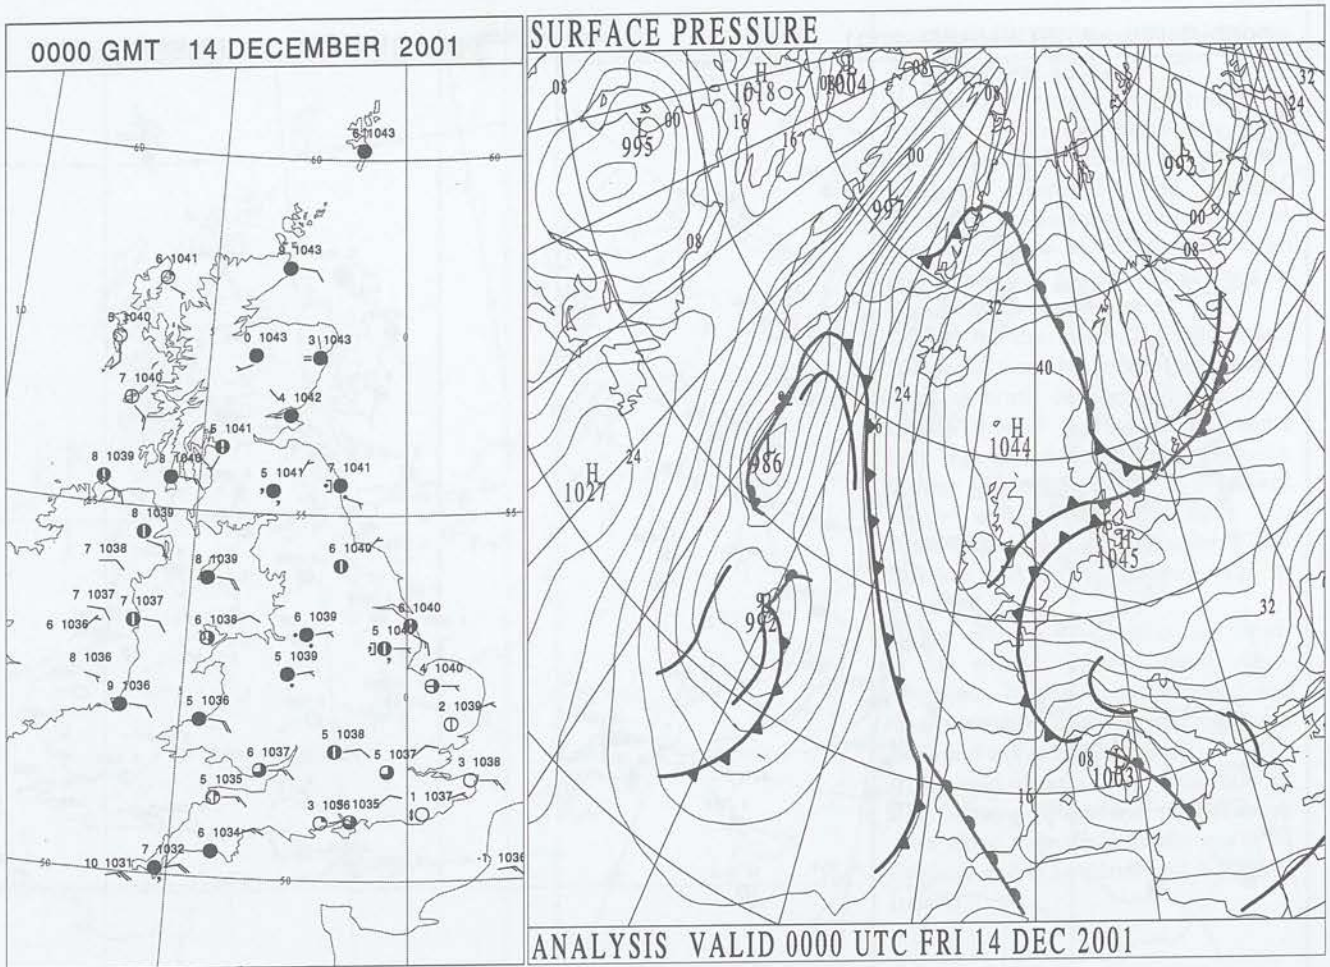 0000 GMT 14 DECEMBER 2001
6 1043
60
60
60
9 1043
6 1041
10
5 1040
5
0 1043
3 1043
0
7 1040
4 1042
5 1041
8 1039
5 1041
7 1041
8 1039
55
55
7 1038
6 1040
8 1039
7 1037
7 1037
6 1036
6 1038
6 1039
6 1040
8 1036
5 1039
4 1040
9 1036
5
0
5 1036
2 1039
5 1038
6 1037
5 1037
3 1038
5 1035
3 1036
1035
1 1037
6 1034
7 1032
10 1031
50
50
-1 1036
SURFACE PRESSURE
08
H
1018
L
1004
08
08
32
24
L
995
00
16
16
00
L
992
L
997
00
08
08
32
40
24
H
1044
16
L
986
24
H
1027
H
1045
32
L
992
08
L
1003
16
ANALYSIS VALID 0000 UTC FRI 14 DEC 2001